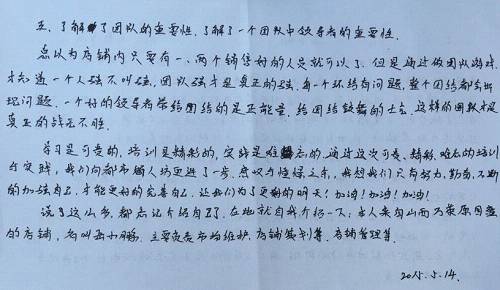 五、了解了团队的重要性,了解了一个团队中领导者的重要性。
总以为店铺内只要有一、两个销售好的人员就可以了,但是通过做团队游戏
才知道一个人强不叫强,团队强才是真正的强,每一个环结有问题,整个团结都会出
现问题,一个好的领导者带给团结的是正能量,给团结鼓舞的士气,这样的团队才是
真正的战无不胜。
学习是可贵的,培训是精彩的,实践是难忘的,通过这次可贵、精彩、难忘的培训
与实践,我们向都市丽人坊更进了一步,
我想我们只有努力,勤奋,不断
的加强自己,才能更好的完善自己,让我们为了更好的明天!加油!加油!加油!
说了这么多,都忘记介绍自己了,在此就自我介绍一下,本人来自山西
的店铺,名叫
小鹏,主要负责市场维护,店铺策划等,店铺管理等。
2015.5.14.